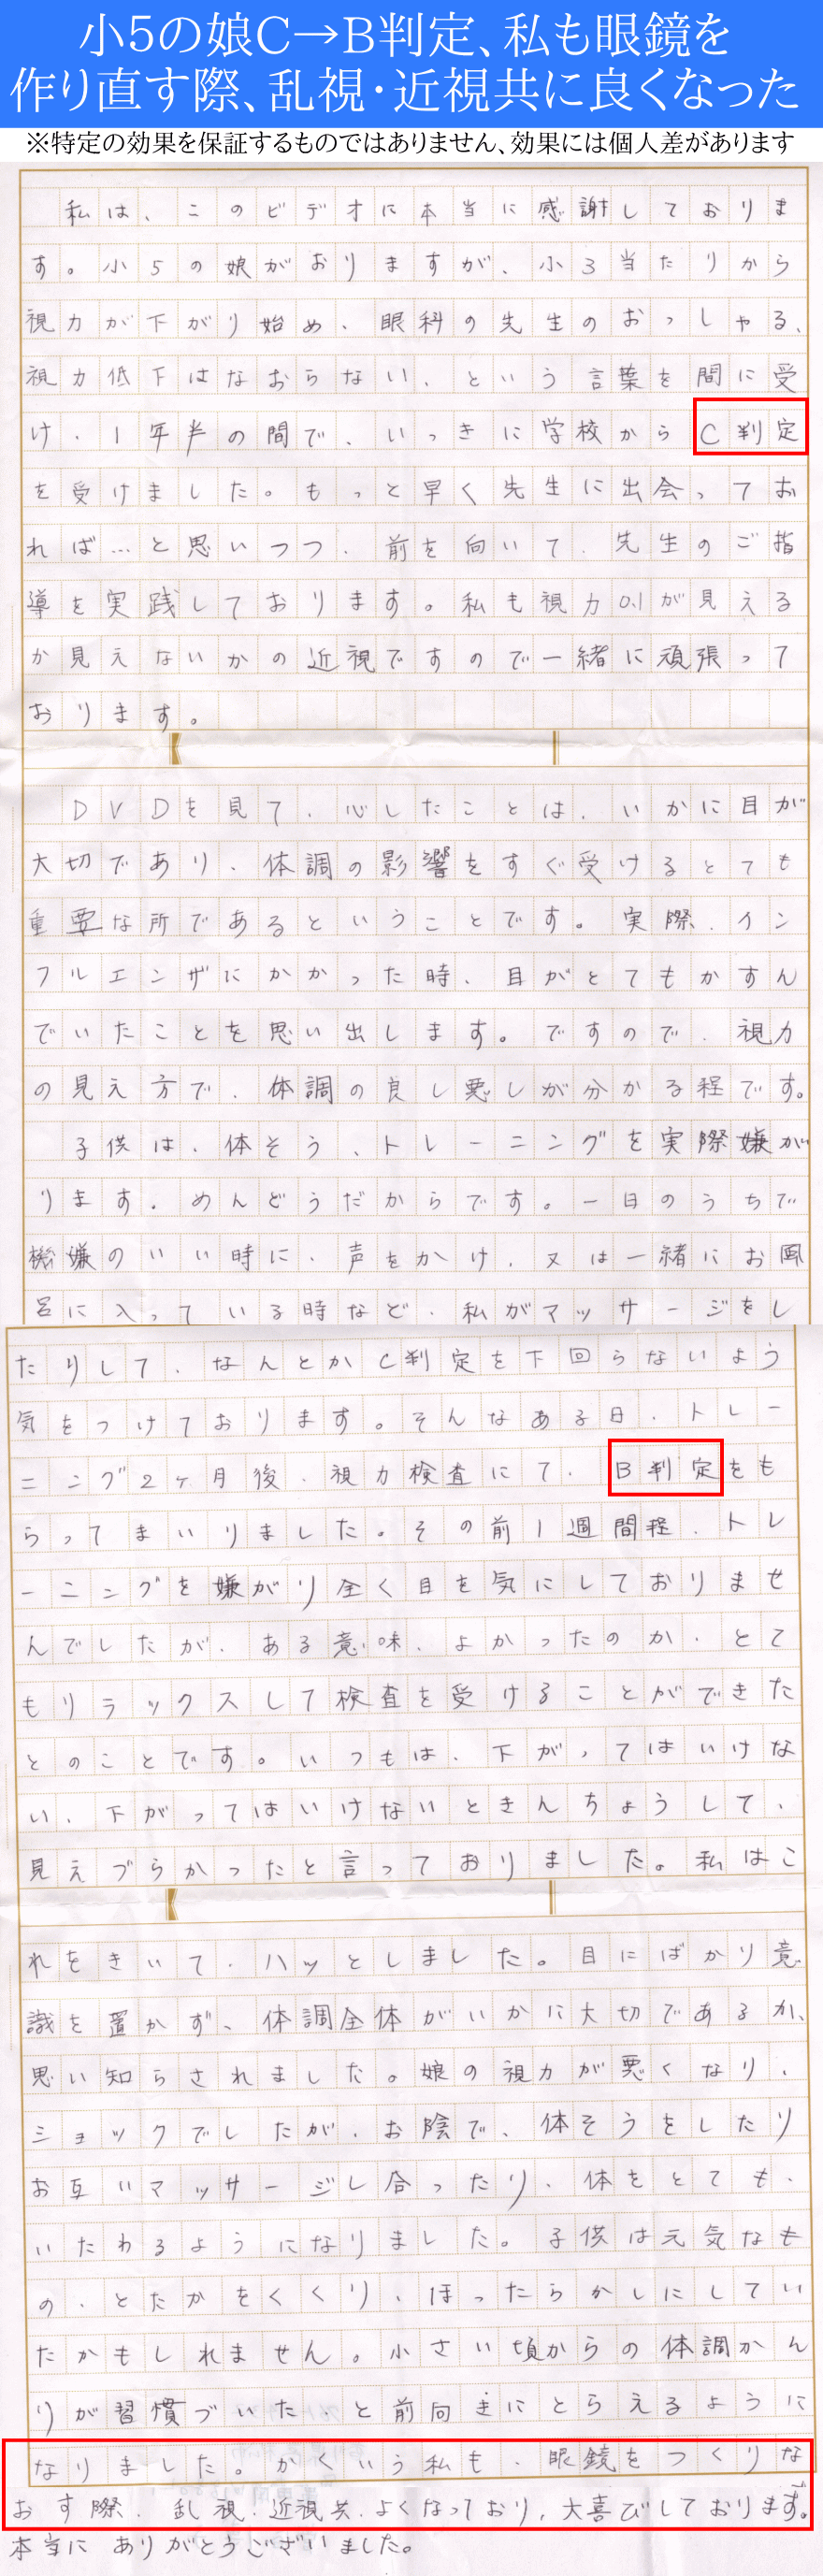 小5の娘C→B判定、私も眼鏡を
作り直す際、乱視・近視共に良くなった
※特定の効果を保証するものではありません、効果には個人差があります
私は、このビデオに本当に感謝しておりま
す。小5の娘がおりますが、小3当たりから
視力が下がり始め、眼科の先生のおっしゃる、
視力低下はなおらない、という言葉を間に受
け、1年半の間で、いっきに学校からC判定
を受けました。もっと早く先生に出会ってお
れば…と思いつつ、前を向いて、先生のご指
導を実践しております。私も視力0.1が見える
か見えないかの近視ですので一緒に頑張って
おります。
DVDを見て、心したことは、いかに目が
大切であり、体調の影響をすぐ受けるとても
重要な所であるということです。実際、イン
フルエンザにかかった時、目がとてもかすん
でいたことを思い出します。ですので、視力
の見え方で、体調の良し悪しが分かる程です。
子供は、体そう、トレーニングを実際嫌が
ります。めんどうだからです。一日のうちで
機嫌のいい時に、声をかけ、又は一緒にお風
呂に入っている時など、私がマッサージをし
たりして、なんとかC判定を下回らないよう
気をつけております。そんなある日、トレー
ニング2ヶ月後、視力検査にて、B判定をも
らってまいりました。その前1週間程、トレ
ーニングを嫌がり全く目を気にしておりませ
んでしたが、ある意味、よかったのか、とて
もリラックスして検査を受けることができた
とのことです。いつもは、下がってはいけな
い、下がってはいけないときんちょうして、
見えづらかったと言っておりました。私はこ
れをきいて、ハッとしました。目にばかり意
識を置かず、体調全体がいかに大切であるか、
思い知らされました。娘の視力が悪くなり、
ショックでしたが、お陰で、体そうをしたり
お互いマッサージし合ったり、体をとても、
いたわるようになりました。子供は元気なも
の、とたかをくくり、ほったらかしにしてい
たかもしれません。小さい頃からの体調かん
りが習慣づいた、と前向きにとらえるように
なりました。かくいう私も、眼鏡をつくりな
おす際、乱視、近視共、よくなっており、大喜びしております。
本当にありがとうございました。